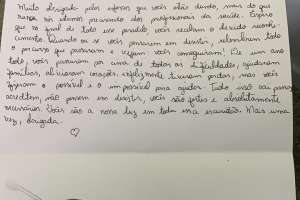 Muito obrigada pelos esforços que vocês estão dando, mais do que
nunca nós estamos precisando dos profissionais da saúde. Espero
que no final de todo esse período, vocês recebam o devido reconhe-
cimento. Quando ou se vocês pensarem em desistir, relembrem todo
o percurso que passaram e vejam vocês conseguiram! De um ano
todo, vocês passaram por cima de todas as dificuldades, ajudaram
famílias, aliviaram corações, infelizmente tiveram perdas, mas vocês
fizeram o possível e o impossível para ajudar. Tudo isso vai passar
acreditem, não pensem em desistir, vocês são fortes e absolutamente
necessários. Vocês são a nossa luz em toda essa escuridão. Mais uma
vez, obrigada.